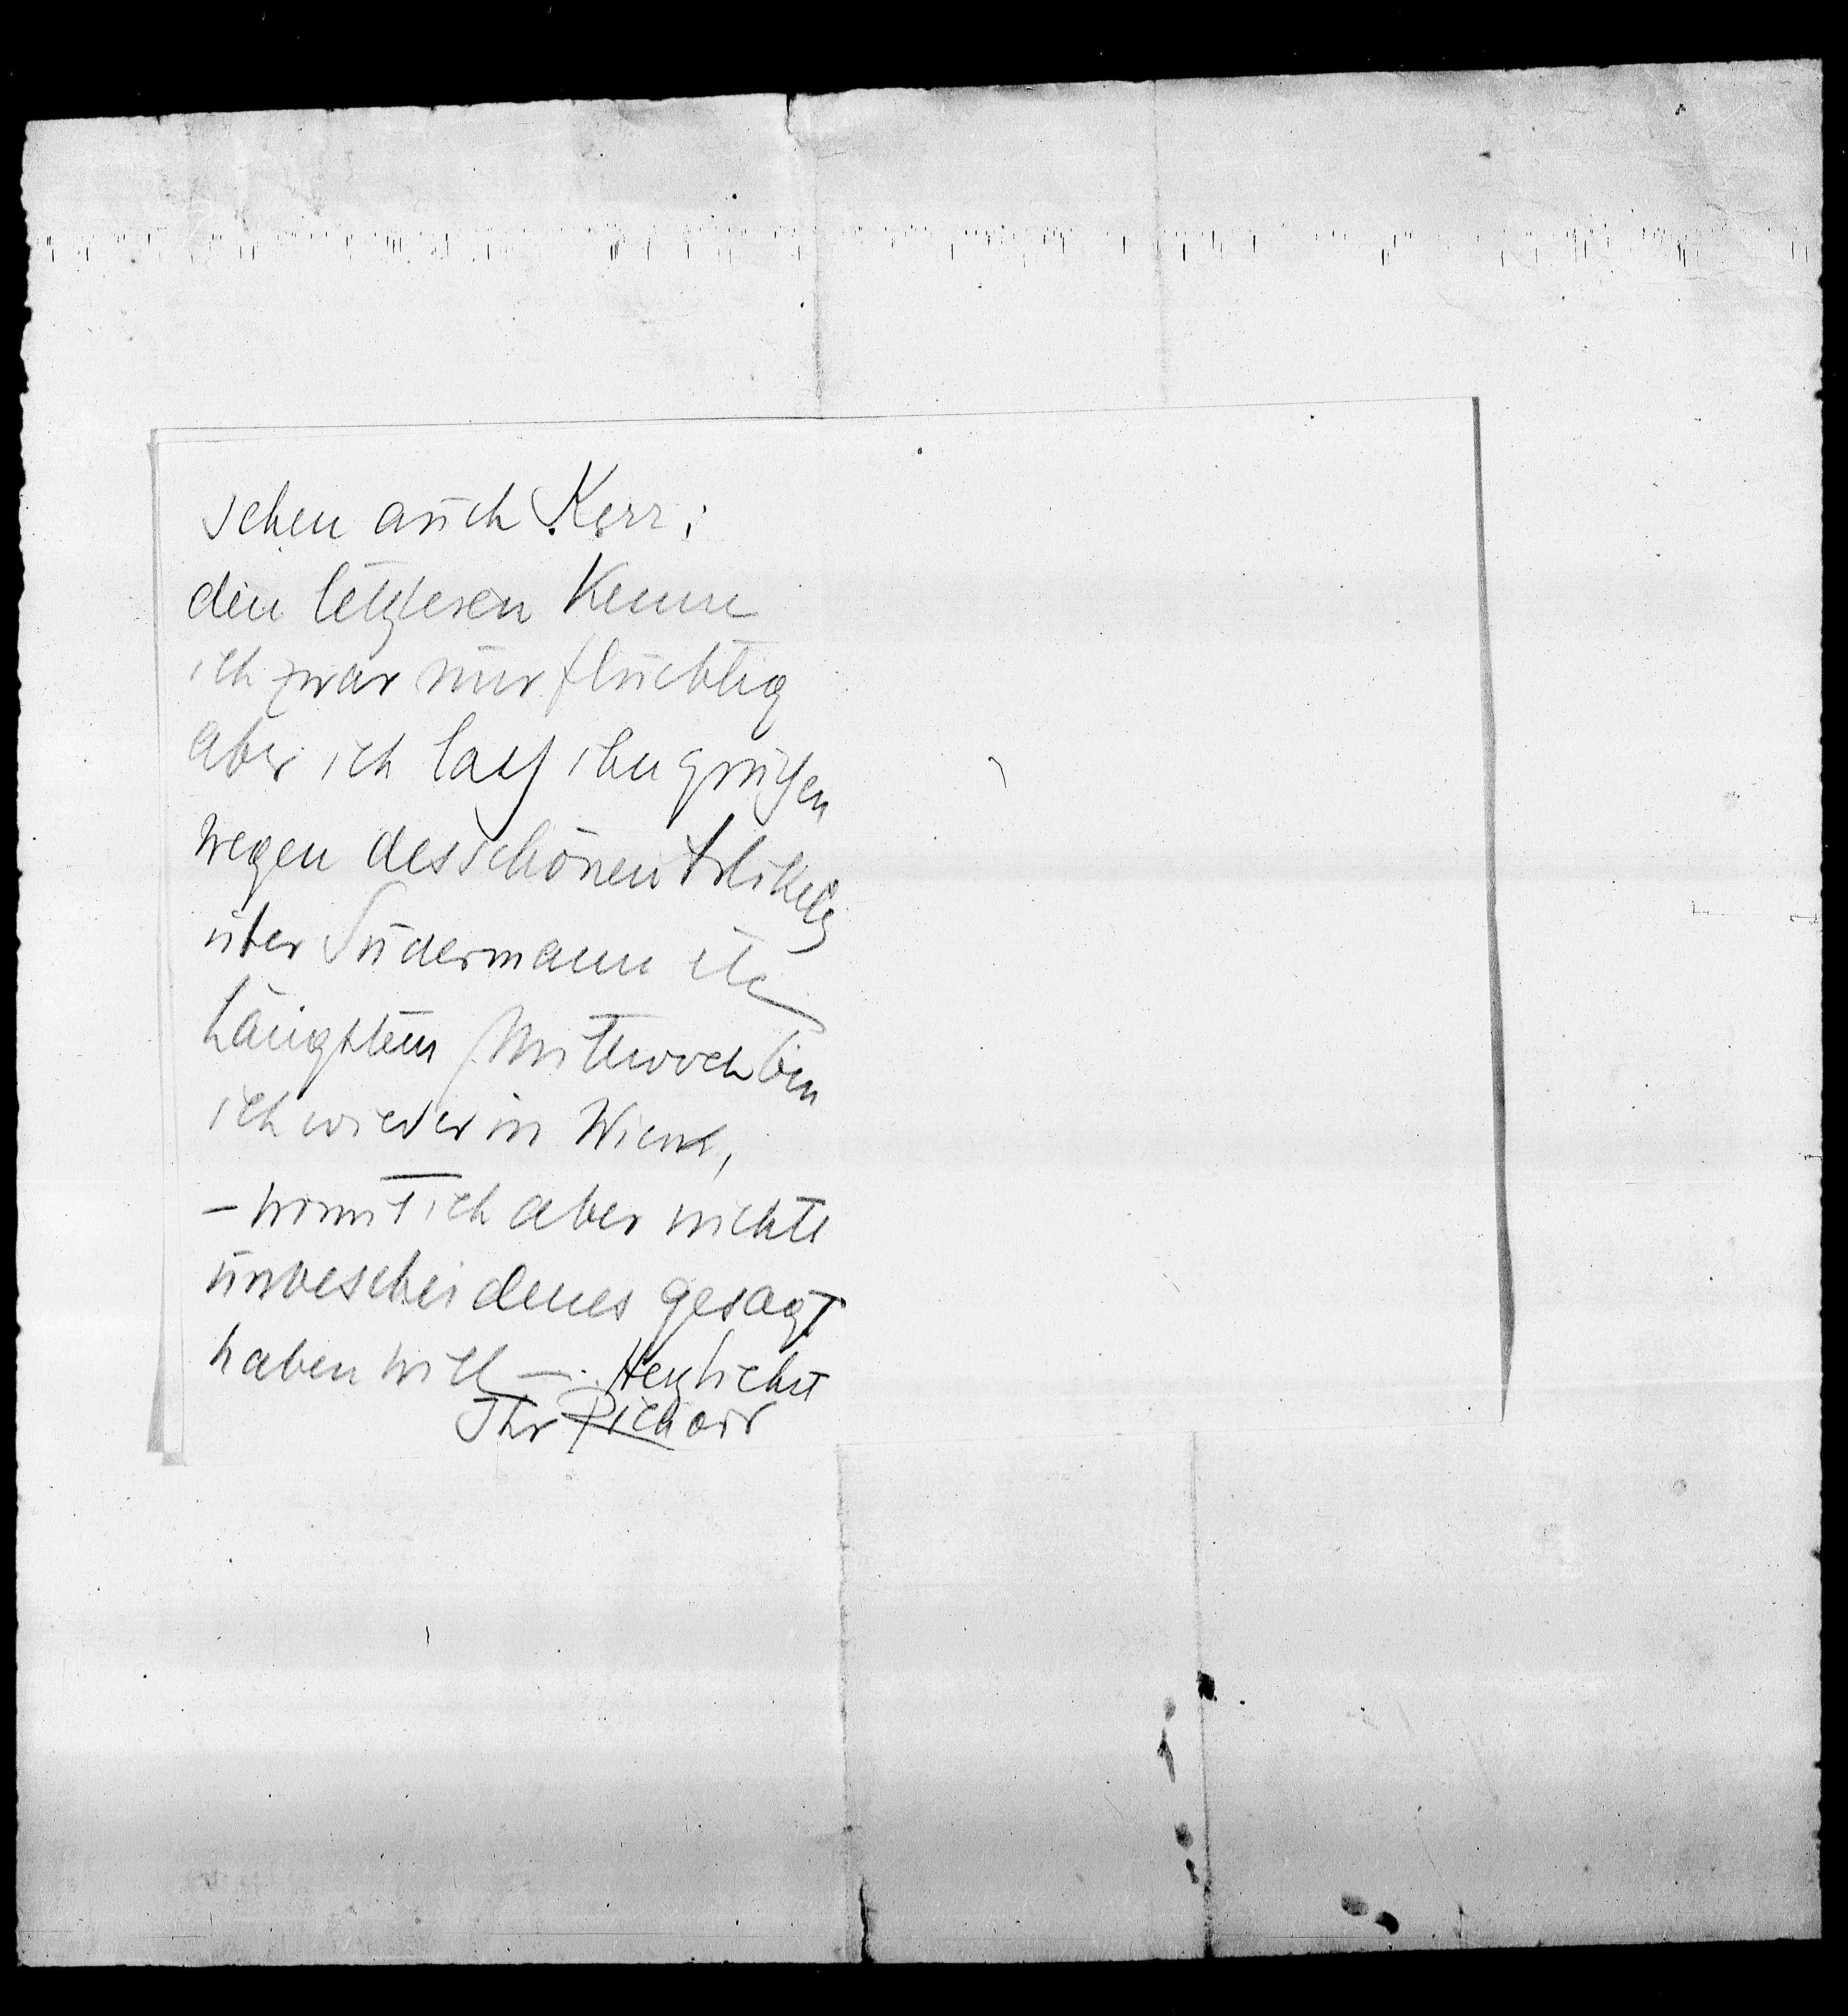 sehen auch Kerr;
den letzteren kenne
ich zwar nur flüchtig
aber ich lass ihn grüßen
wegen des schönen Artikels
über Sudermann etc
Längstens Mittwoch bin
ich wieder in Wien,
– womit ich aber nichts
unbescheidenes gesagt
haben will –. Herzlichst
Ihr Richard